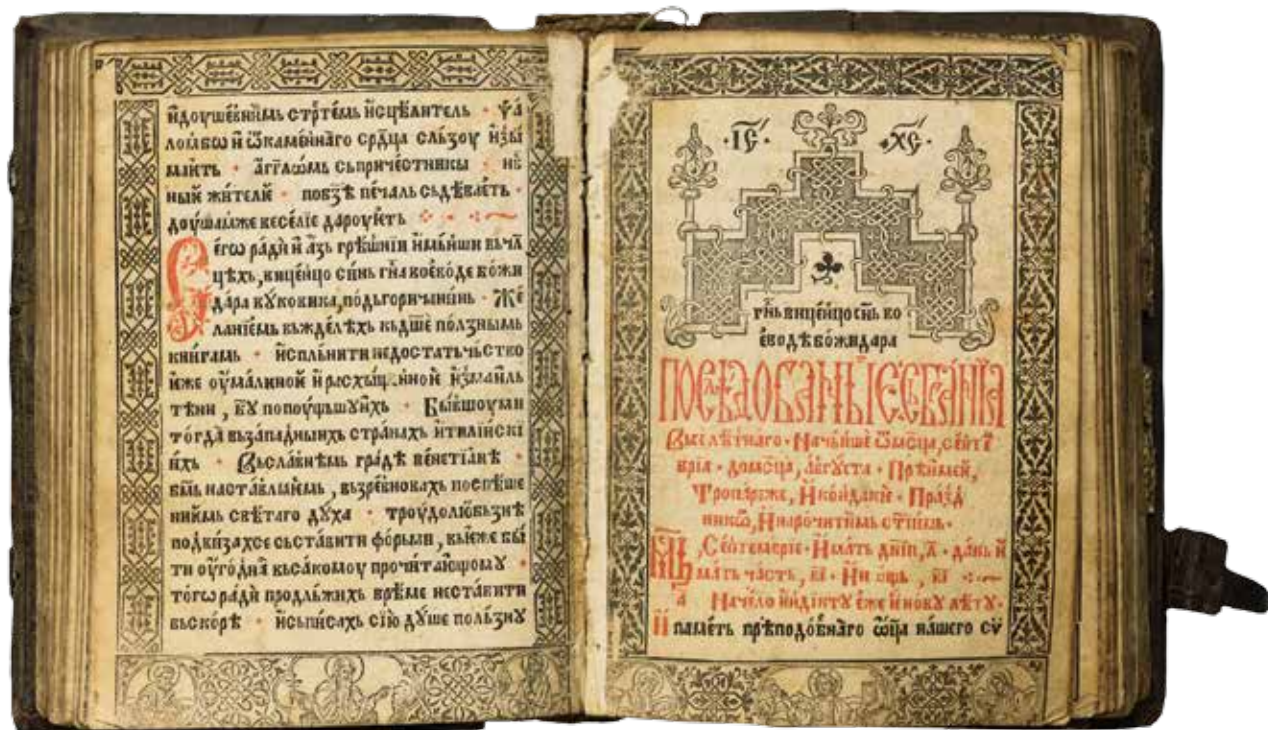 и҆доуше́вни́мь стр҇тѐмь и҆сцѣ́лнтель · ѱа
ло́мбѡ и҆ ѡ҆камѐннаго срд҇ца сль́зоу и҆зы
ма́ить · а҆гг҃лѡмь сьприче́стникы · не
ный жи́телѥ · побз҃ѣ печа́ль сьдѣва́еть ·
доуша́мже весе́лїе дароуи́еть
Се́гѡ ра́ди и҆ а҆зь грѣ́шнїи и҆мьнши вьчл҃
цѣхь, виценцо сн҃ь гн҃а воѥво́де бо́жи
дара вꙋковика, по́дьгоричьнинь · Же
ла́нїемь вьждел̀ѣхь кьдш҃е по́лзнымь
кни́гамь · и҆спльни́ти недоста́тьчьство
и҆же оу҆ма́линой и҆ расхы́щ нной и҆змаиль
тѣни, бг҃ꙋ попоу́щьшꙋ и҆хь · Бы́вшоу ми
тогда̀ вьза́падныихь стра́нахь и҆тилїискї
ихь · Вьсла́внѣмь гра́дѣ вене́тїанѣ ·
бг҃мь наста́влꙗ́ѥмь, вьзревнова́хь поспѣ́ше
нїи́мь свѐтаго дꙋ́ха · троудолю́бьзнѣ
подвиза́хсе сьста́вити фо́рьми, вьѥ́же бы́
ти оу҆го́днаꙗ̀ вьса́комоу прочи́та́ющомꙋ ·
то́гѡ ра́ди продльжихь врѣ́ме и҆сста́вити
вьско́рѣ · и҆сьписа́хь сїю̀ дꙋ́ше по́льзнꙋ
·І҆С҃· ·ХС҃·
гн҃ь виценцо сн҃ь во
ѐводѣ бо́жидара
ПОСЛѢДОВАНЬІѤ СЬБРАНЇА
Вьслѣ́тнаго · На́чьнше ѿ мс҃ца, сеи́тѐ
врїа · до мс҃ца, а҆вгꙋ́ста · Прѣи́мей,
Тропа́рьже, и҆ конда́кы · Пра́зд
никѡ, и҆ наро́читимь ст҃імь ·
Мц҃ь, Се́птемврїе · и҆ма́ть дні́и, л҃ · дань и҆
ма́ть ча́сть, в҃і · и҆ но́щь, в҃і
а Наче́ло и҆нди́ктꙋ є҆же и҆ но́вꙋ лѣ́тꙋ ·
и҆ па́меть прѣподо́бнаго ѿц҃а на́шего сѵ